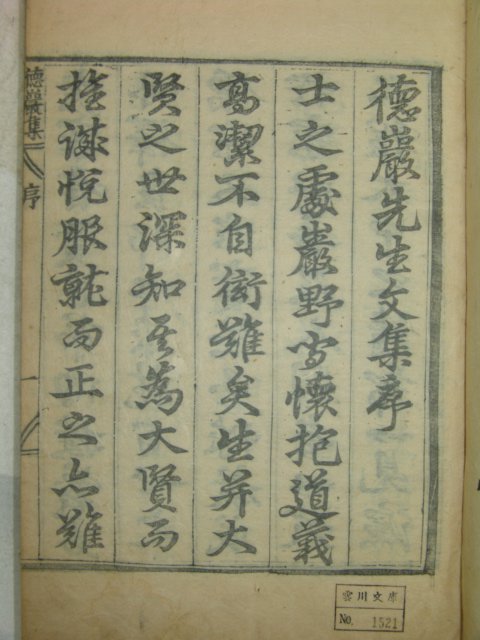 德巖先生文集序
士之處巖野守懷抱道義
高潔不自衒難矣生并大
賢之世深知其爲大賢而
推誠悅服就而正之亦難
德巖集 序 一
雲川文庫
No. 1521